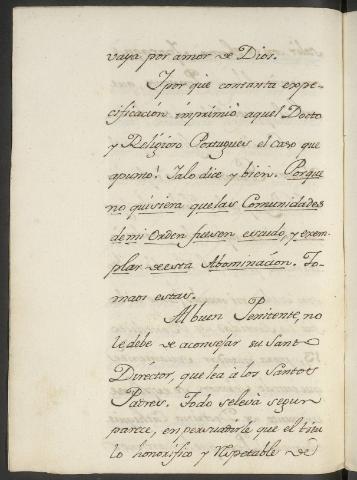 vaya por amor de Dios.
Ypor què contanta expe-
cificación imprimiò aquel Docto
y Religioso Portugues el caso que
apunto? Yalo dice y bien. Porque
no quisiera que las Comunidades
de mi Orden fuesen escudo, y exem-
plar de esta Abominacion. To-
maos estas.
Al buen Penitente, no
le debe de aconsejar su Santo
Director, que lea à los Santos
Padres. Todo selevà segun
parece, en persuadirle que el titu
lo honorifico y respetable de